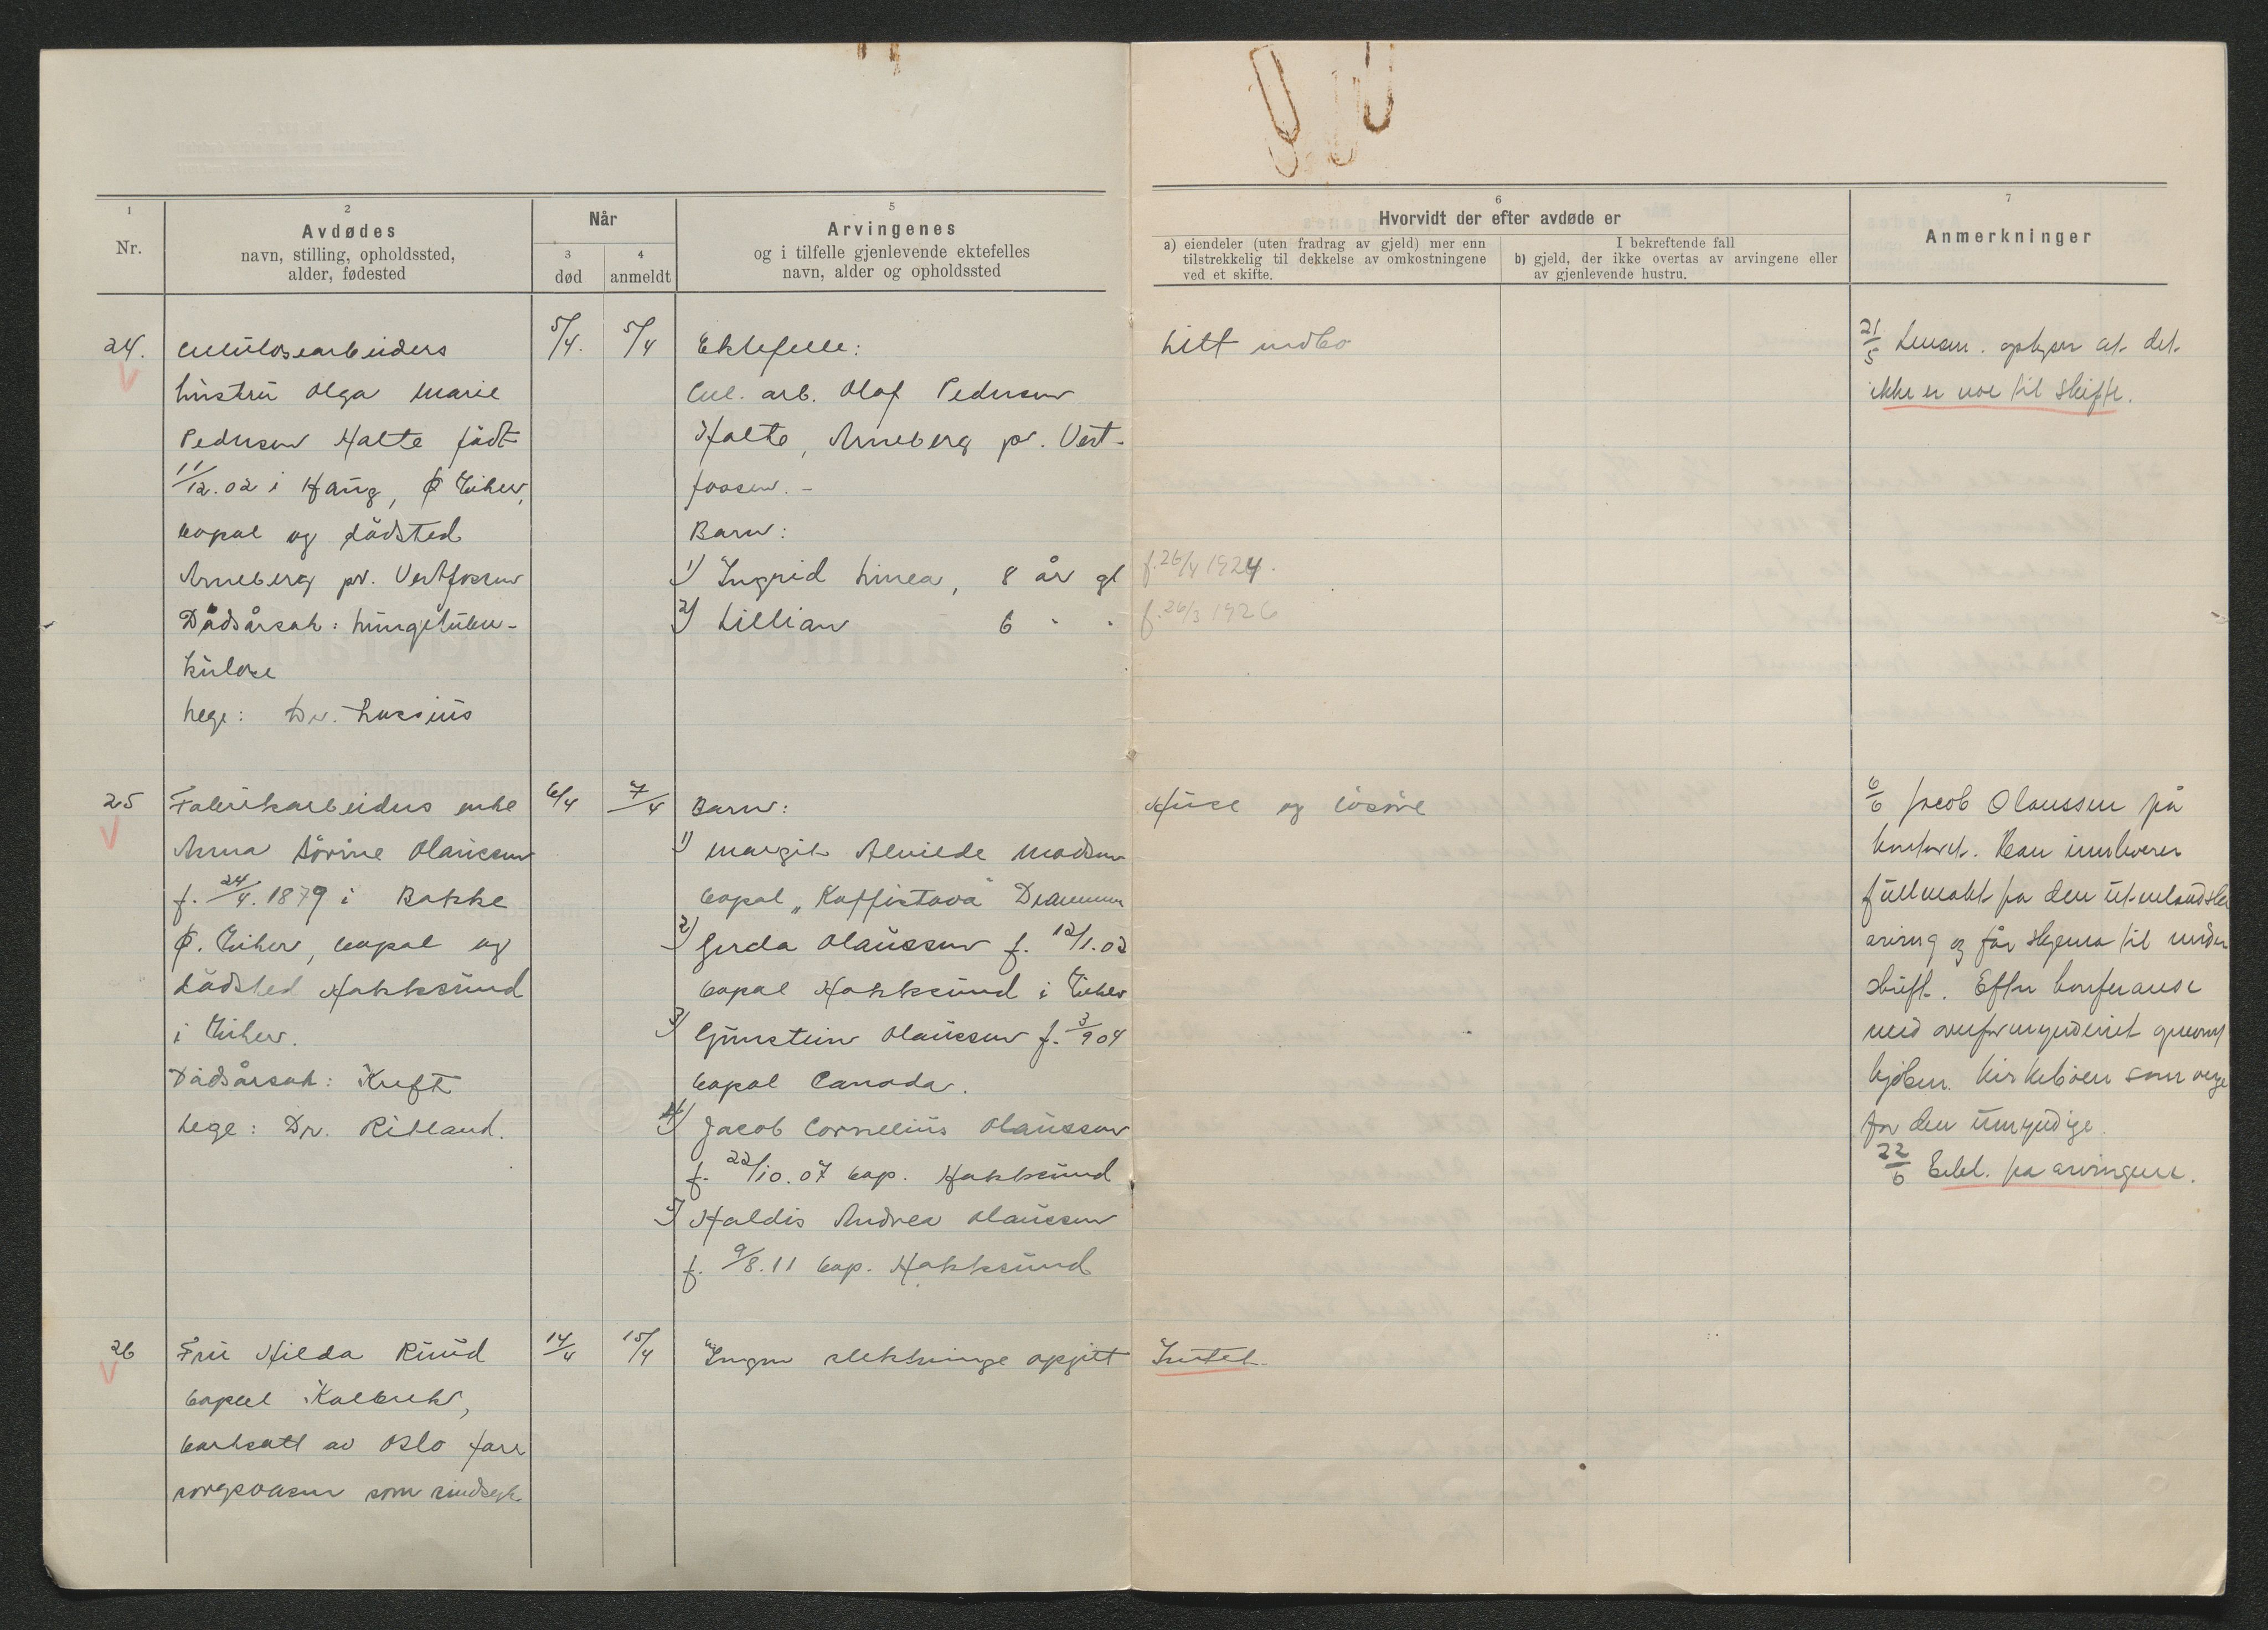 1
Nr.
2
Avdødes
navn, stilling, opholdssted,
alder, fødested
Når
3
død
4
anmeldt
5
Arvingenes
og i tilfelle gjenlevende ektefelles
navn, alder og opholdssted
6
Hvorvidt der efter avdøde er
a) eiendeler (uten fradrag av gjeld) mer enn
tilstrekkelig til dekkelse av omkostningene
ved et skifte.
I bekreftende fall
b) gjeld, der ikke overtas av arvingene eller
av gjenlevende hustru.
7
Anmerkninger
24.
Cellulosearbeiders
hustru Olga Marie
Pedersen Halte født
11/12.02 i Haug, Ø Eiker,
bopæl og dødsted
Arneberg pr. Vestfossen
Dødsårsak: Lungetuber-
kulose
Lege: Dr. Lassius
5/4.
5/4
Ektefelle:
Cel. arb. Olaf Pedersen
Halte, Arneberg pr. Vest-
fossen. -
Barn:
1) Ingrid Linea, 8 år gl
2) Lillian 6 " "
Litt indbo
f. 26/4 1924.
f. 26/3 1926
21/5 Lensm. oplyser at det
ikke er noe til skifte.
25
Fabrikarbeiders enke
Anna Sørine Olaussen
f. 24/4. 1879 i Bakke
Ø. Eiker, bopæl og
dødsted Hokksund
i Eiker.
Dødsårsak: Kreft
Lege: Dr. Rilland.
6/4
7/4
Barn:
1) Margit Alvilde Madsen
bopæl "Kaffistova" Drammen
2) Gerda Olaussen f. 12/1.02
bopæl Hokksund i Eiker
3) Gunstein Olaussen f. 3/9 04
bopæl Canada.
4) Jacob Cornelius Olaussen
f. 22/10.07 bop. Hokksund
5) Haldis Andrea Olaussen
f. 9/8.11 bop. Hokksund
Huse og løsøre
6/6 Jacob Olaussen på
kontoret. Han innleverer
fullmakt fra den utenlandske
arving og får skjema til under
skrift. Efter konferanse
med overformynderiet opnevnt
Kirkebøen som verge
for den umyndige.
22/6 Erkl. fra arvingene.
26
Fru Hilda Ruud
bopæl Kolbrek,
bortsatt av Oslo for
sorgsvesen som sindsyk
14/4
15/4
Ingen slektninge opgitt
Intet